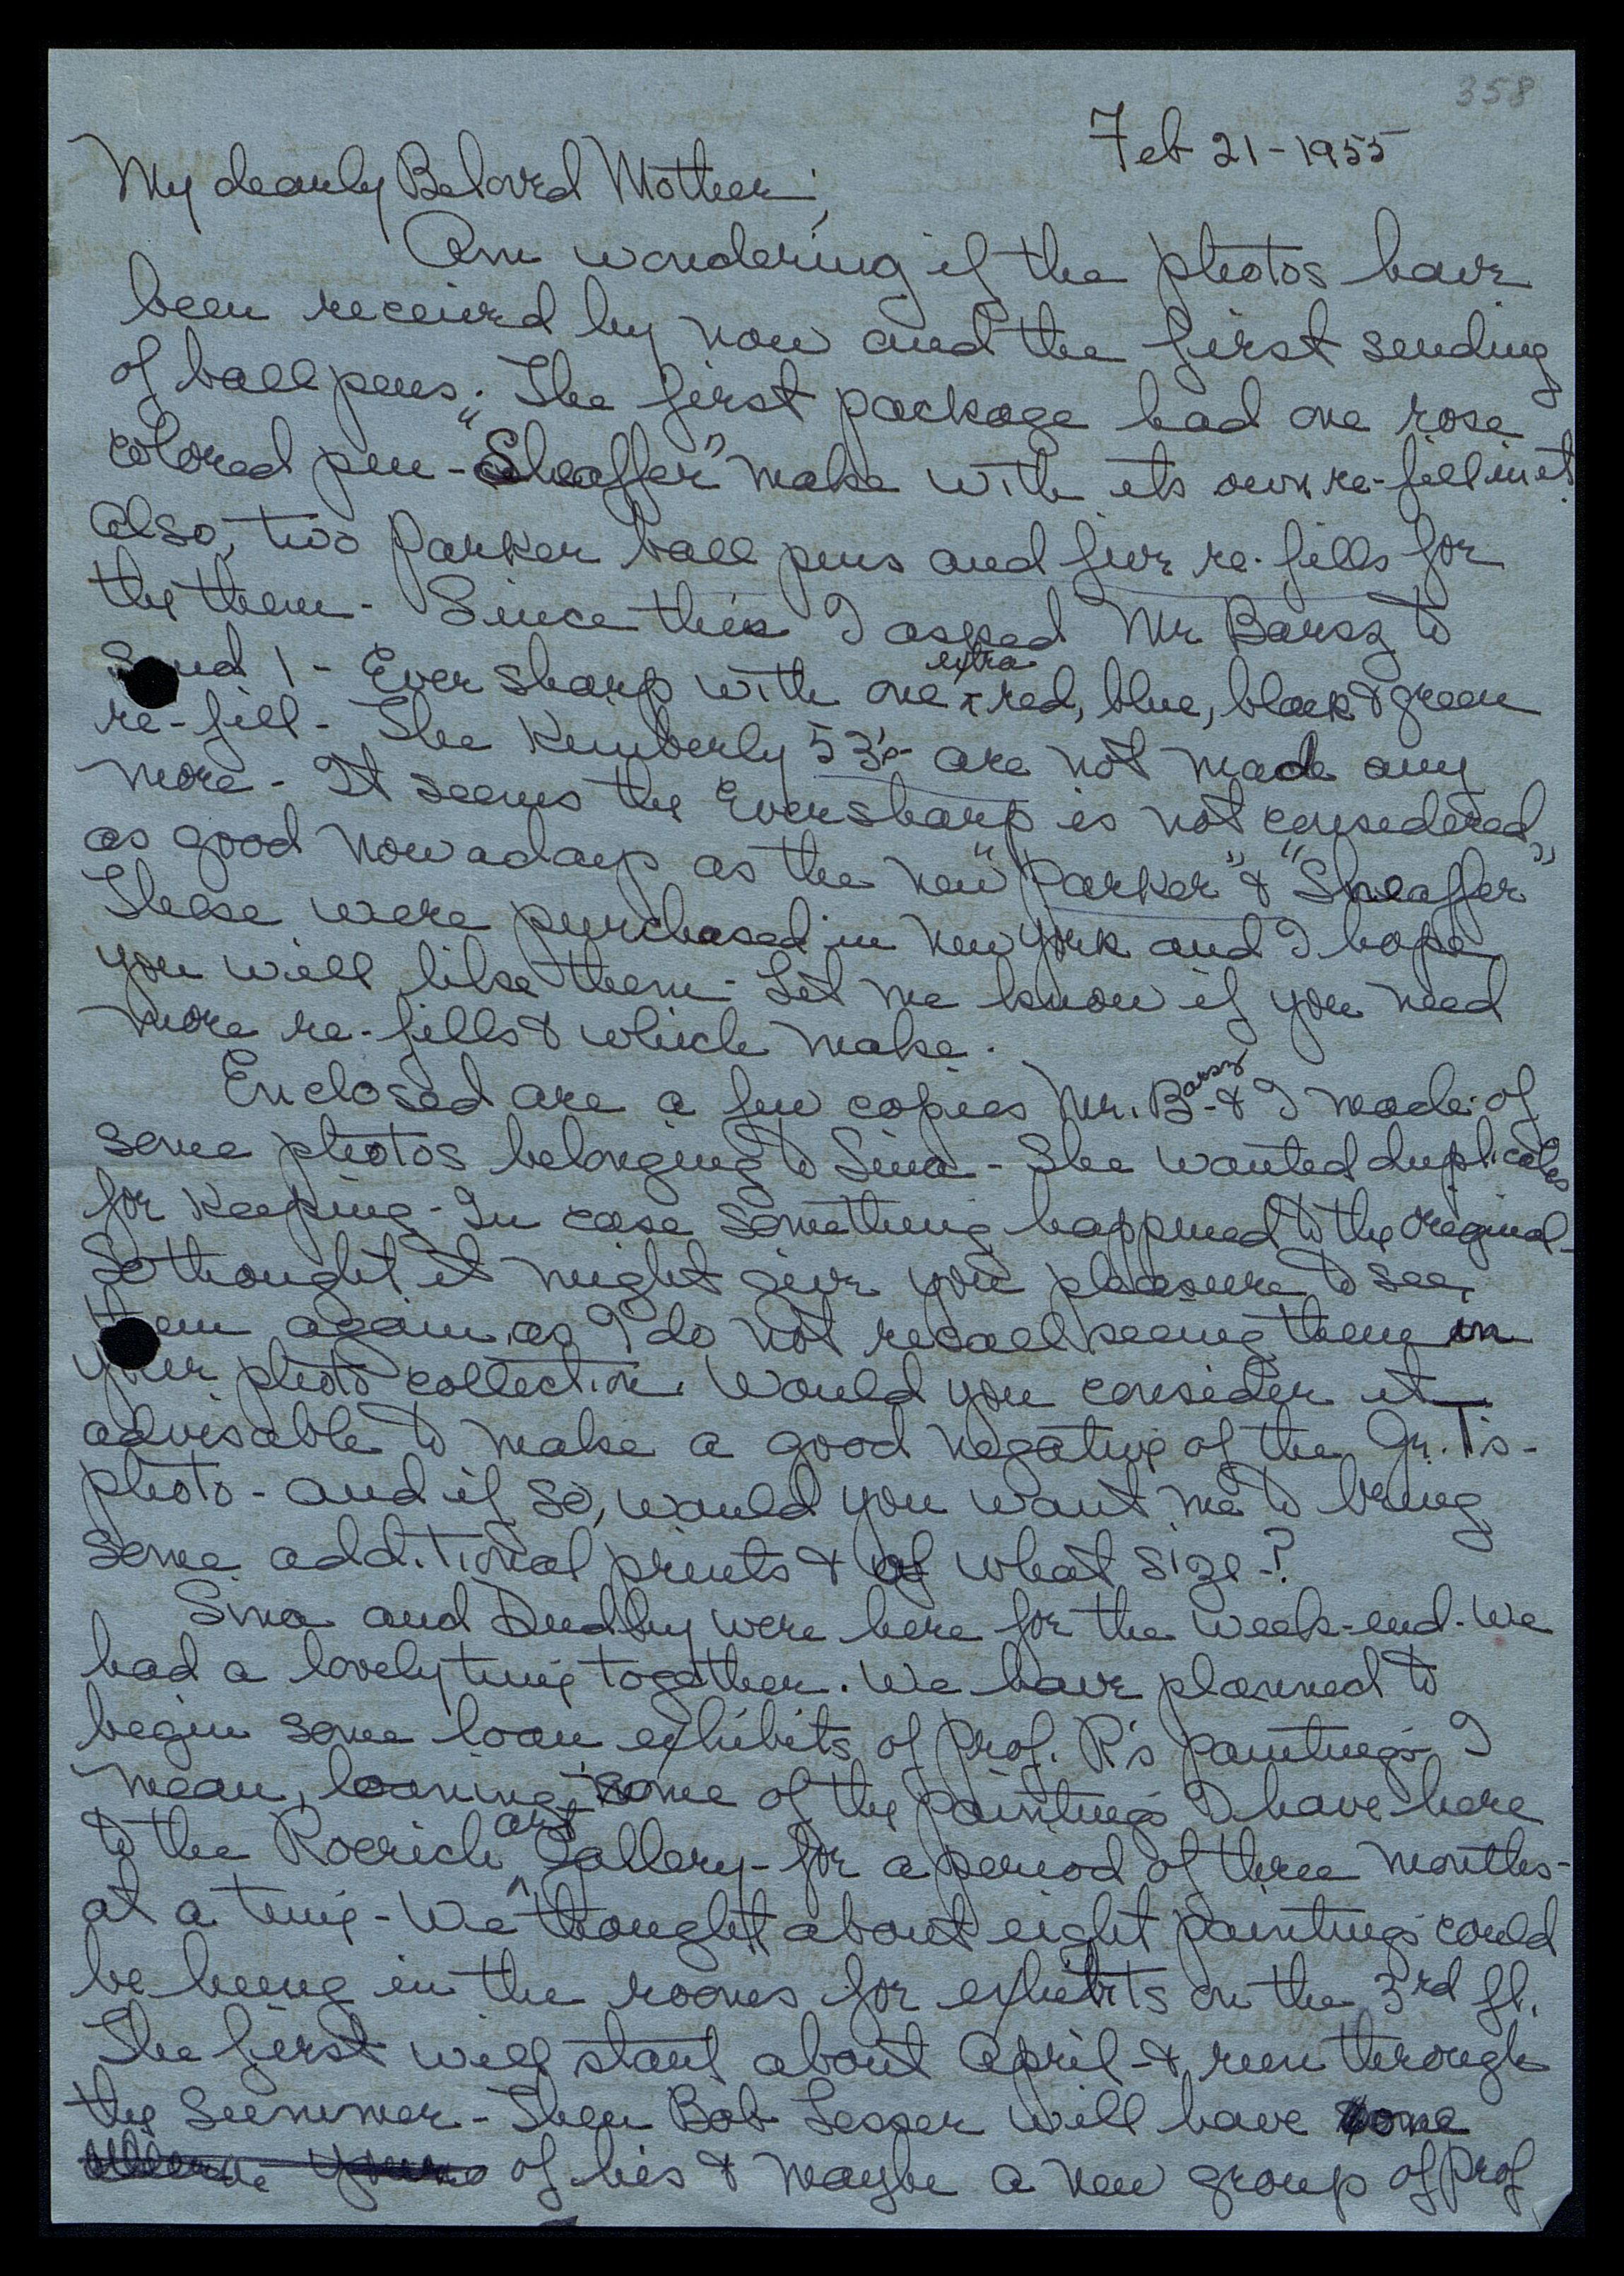 358
Feb 21-1955
My dearly Beloved Mother;
Am wondering if the photos have
been received by now and the first sending
of ball pens. The first package had one rose
colored pen - "Sheaffer" make with its own re-fill in it.
Also, two Parker ball pens and five re-fills for
the them - Since this I asked Mr Barsz to
send 1 - Eversharp with one extra red, blue, black & green
re-fill - The Kimberly 53's - are not made any
more - It seems the Eversharp is not considered
as good nowadays as the new "Parker" & "Sheaffer"
These were purchased in New York and I hope
you will like them - Let me know if you need
more re-fills & which make.
Enclosed are a few copies Mr. Barsz - & I made of
some photos belonging to Sina - She wanted duplicates
for keeping - In case something happened to the original -
So thought it might give you pleasure to see
them again, as I do not recall seeing them in
your photo collection. Would you consider it
advisable to make a good negative of the Gr. T's -
photo - and if so, would you want me to bring
some additional prints & of what size -?
Sina and Dudley were here for the week-end. We
had a lovely time together. We have planned to
begin some loan exhibits of Prof. R's paintings - I
mean, loaning some of the paintings I have here
to the Roerich Art Gallery - for a period of three months -
at a time - We thought about eight paintings could
be hung in the rooms for exhibits on the 3rd fl.
The first will start about April - & run through
the Summer - Then Bob Lesser will have some
of his & maybe a new group of Prof